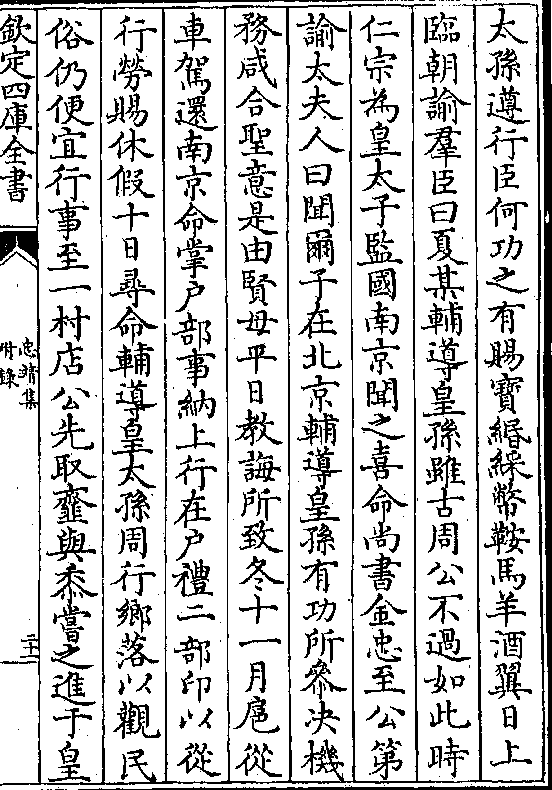 太孫遵行臣何功之有賜寶緡綵幣鞍馬羊酒翼日上
臨朝諭羣臣曰夏某輔導皇孫雖古周公不過如此時
仁宗為皇太子監國南京聞之喜命尚書金忠至公第
諭太夫人曰聞爾子在北京輔導皇孫有功所叅決機
務咸合聖意是由賢母平日教誨所致冬十一月扈從
車駕還南京命掌户部事納上行在户禮二部印以從
行勞賜休假十日尋命輔導皇太孫周行鄉落以觀民
俗仍便宜行事至一村店公先取虀與黍嘗之進于皇
欽定四庫全書
忠靖集
附錄
二十一